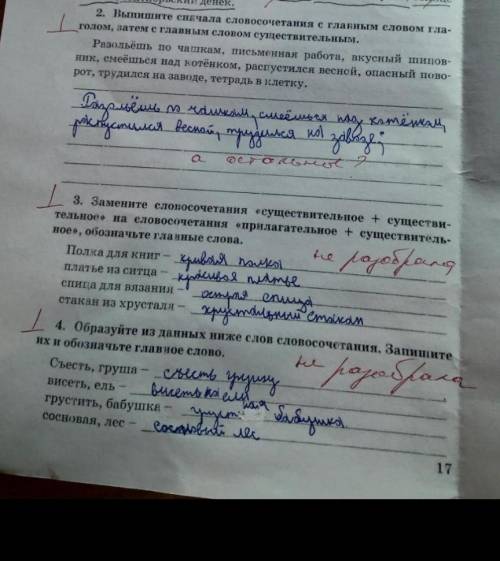 рский денек.
2. Выпишите сначала словосочетания с главным словом гла-
голом, затем с главным словом существительным.
Разольёшь по чашкам, письменная работа, вкусный шипов-
ник, смеёшься над котёнком, распустился весной, опасный пово-
рот, трудился на заводе, тетрадь в клетку.
Разольёшь по чашкам, смеёшься над котёнком,
распустился весной, трудился на заводе;
а остальное?
3. Замените словосочетания «существительное + существи-
тельное» на словосочетания «прилагательное + существитель-
ное», обозначьте главные слова.
не разобрала
Полка для книг – кривая полка
платье из ситца – красивая платье
спица для вязания – острая спица
стакан из хрусталя – хрустальный стакан
1 4. Образуйте из данных ниже слов словосочетания. Запишите
их и обозначьте главное слово.
не разобрала
Съесть, груша – съесть грушу
висеть, ель – висеть на ели
грустить, бабушка – бабушка
сосновая, лес – сосновый лес
17